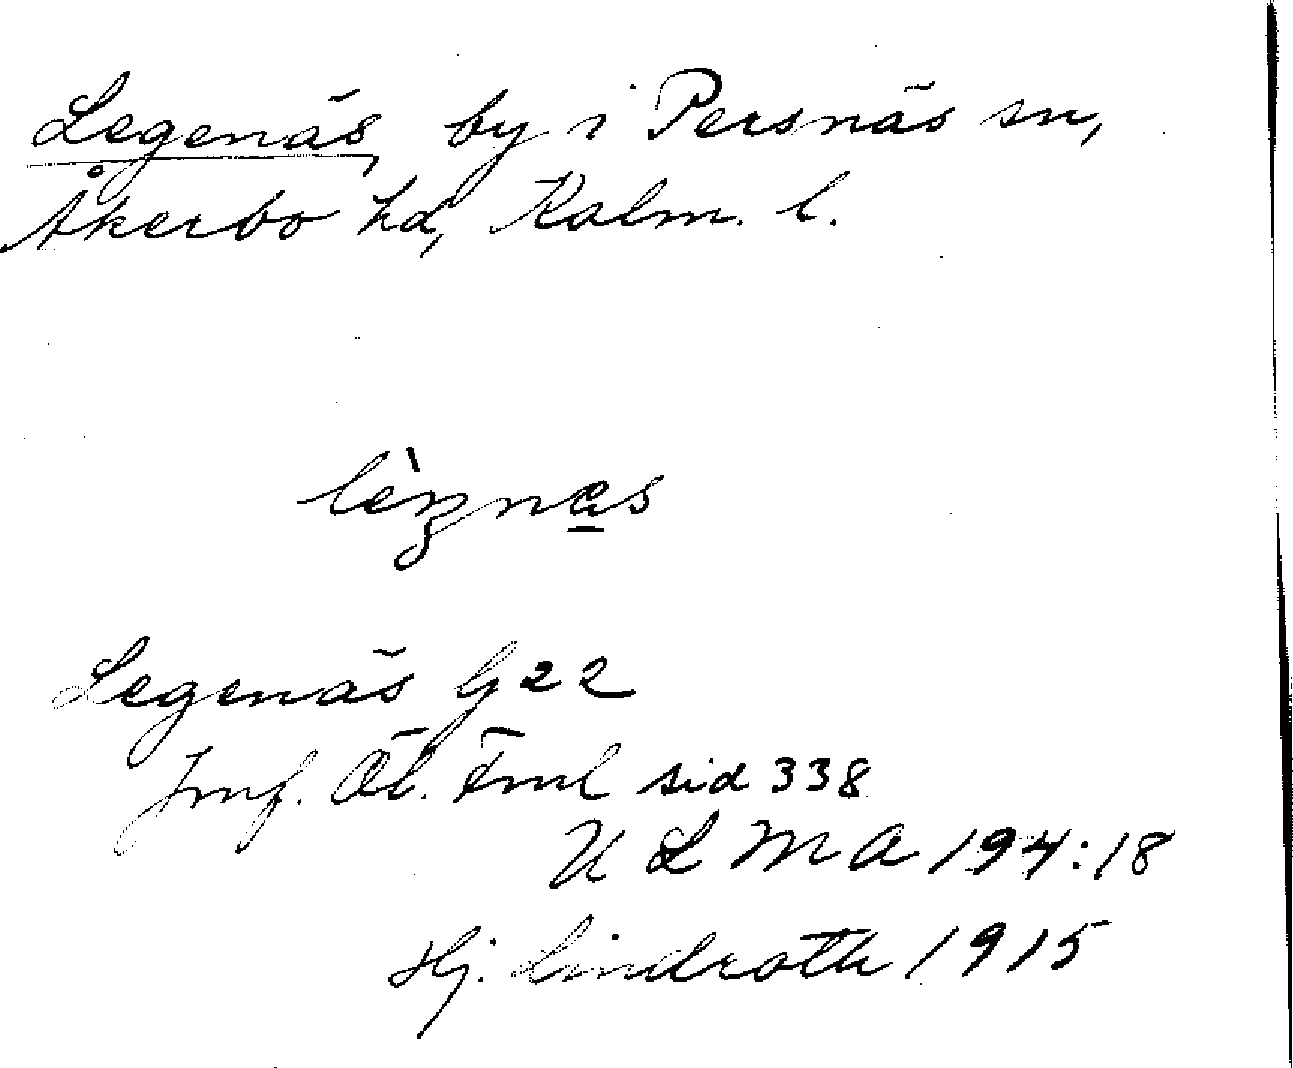 Legenäs, by i Persnäs sn,
Åkerbo hd, Kalm. l.
Legenäs G 22
Jmf. Öl. Fml sid 338
U L M A 194:18
Hj. Lindroth 1915